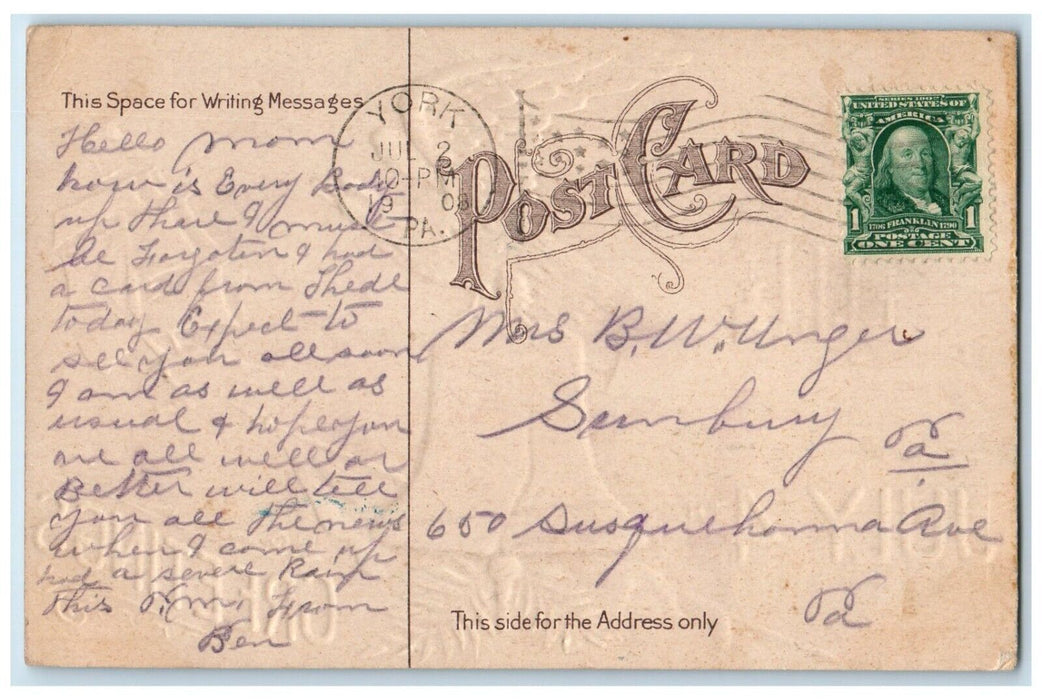 This Space for Writing Messages
Hello Mom
how is Every Body
up there I must
be Forgoten I had
a card from Thede
today Expect to
see you all soon
I am as well as
usual & hope you
are all well or
Better will tell
you all the news
when I come up
had a severe Rain
this P.m. From
Ben
YORK
JUL 2
PM
PA.
POST CARD
SERIES 1902
UNITED STATES OF
AMERICA
1 1
1706 FRANKLIN 1790
POSTAGE
ONE CENT
Mrs B. W. Unger
Sunbury
Pa
650 Susquehanna Ave
Pa
This side for the Address only
JULY 4